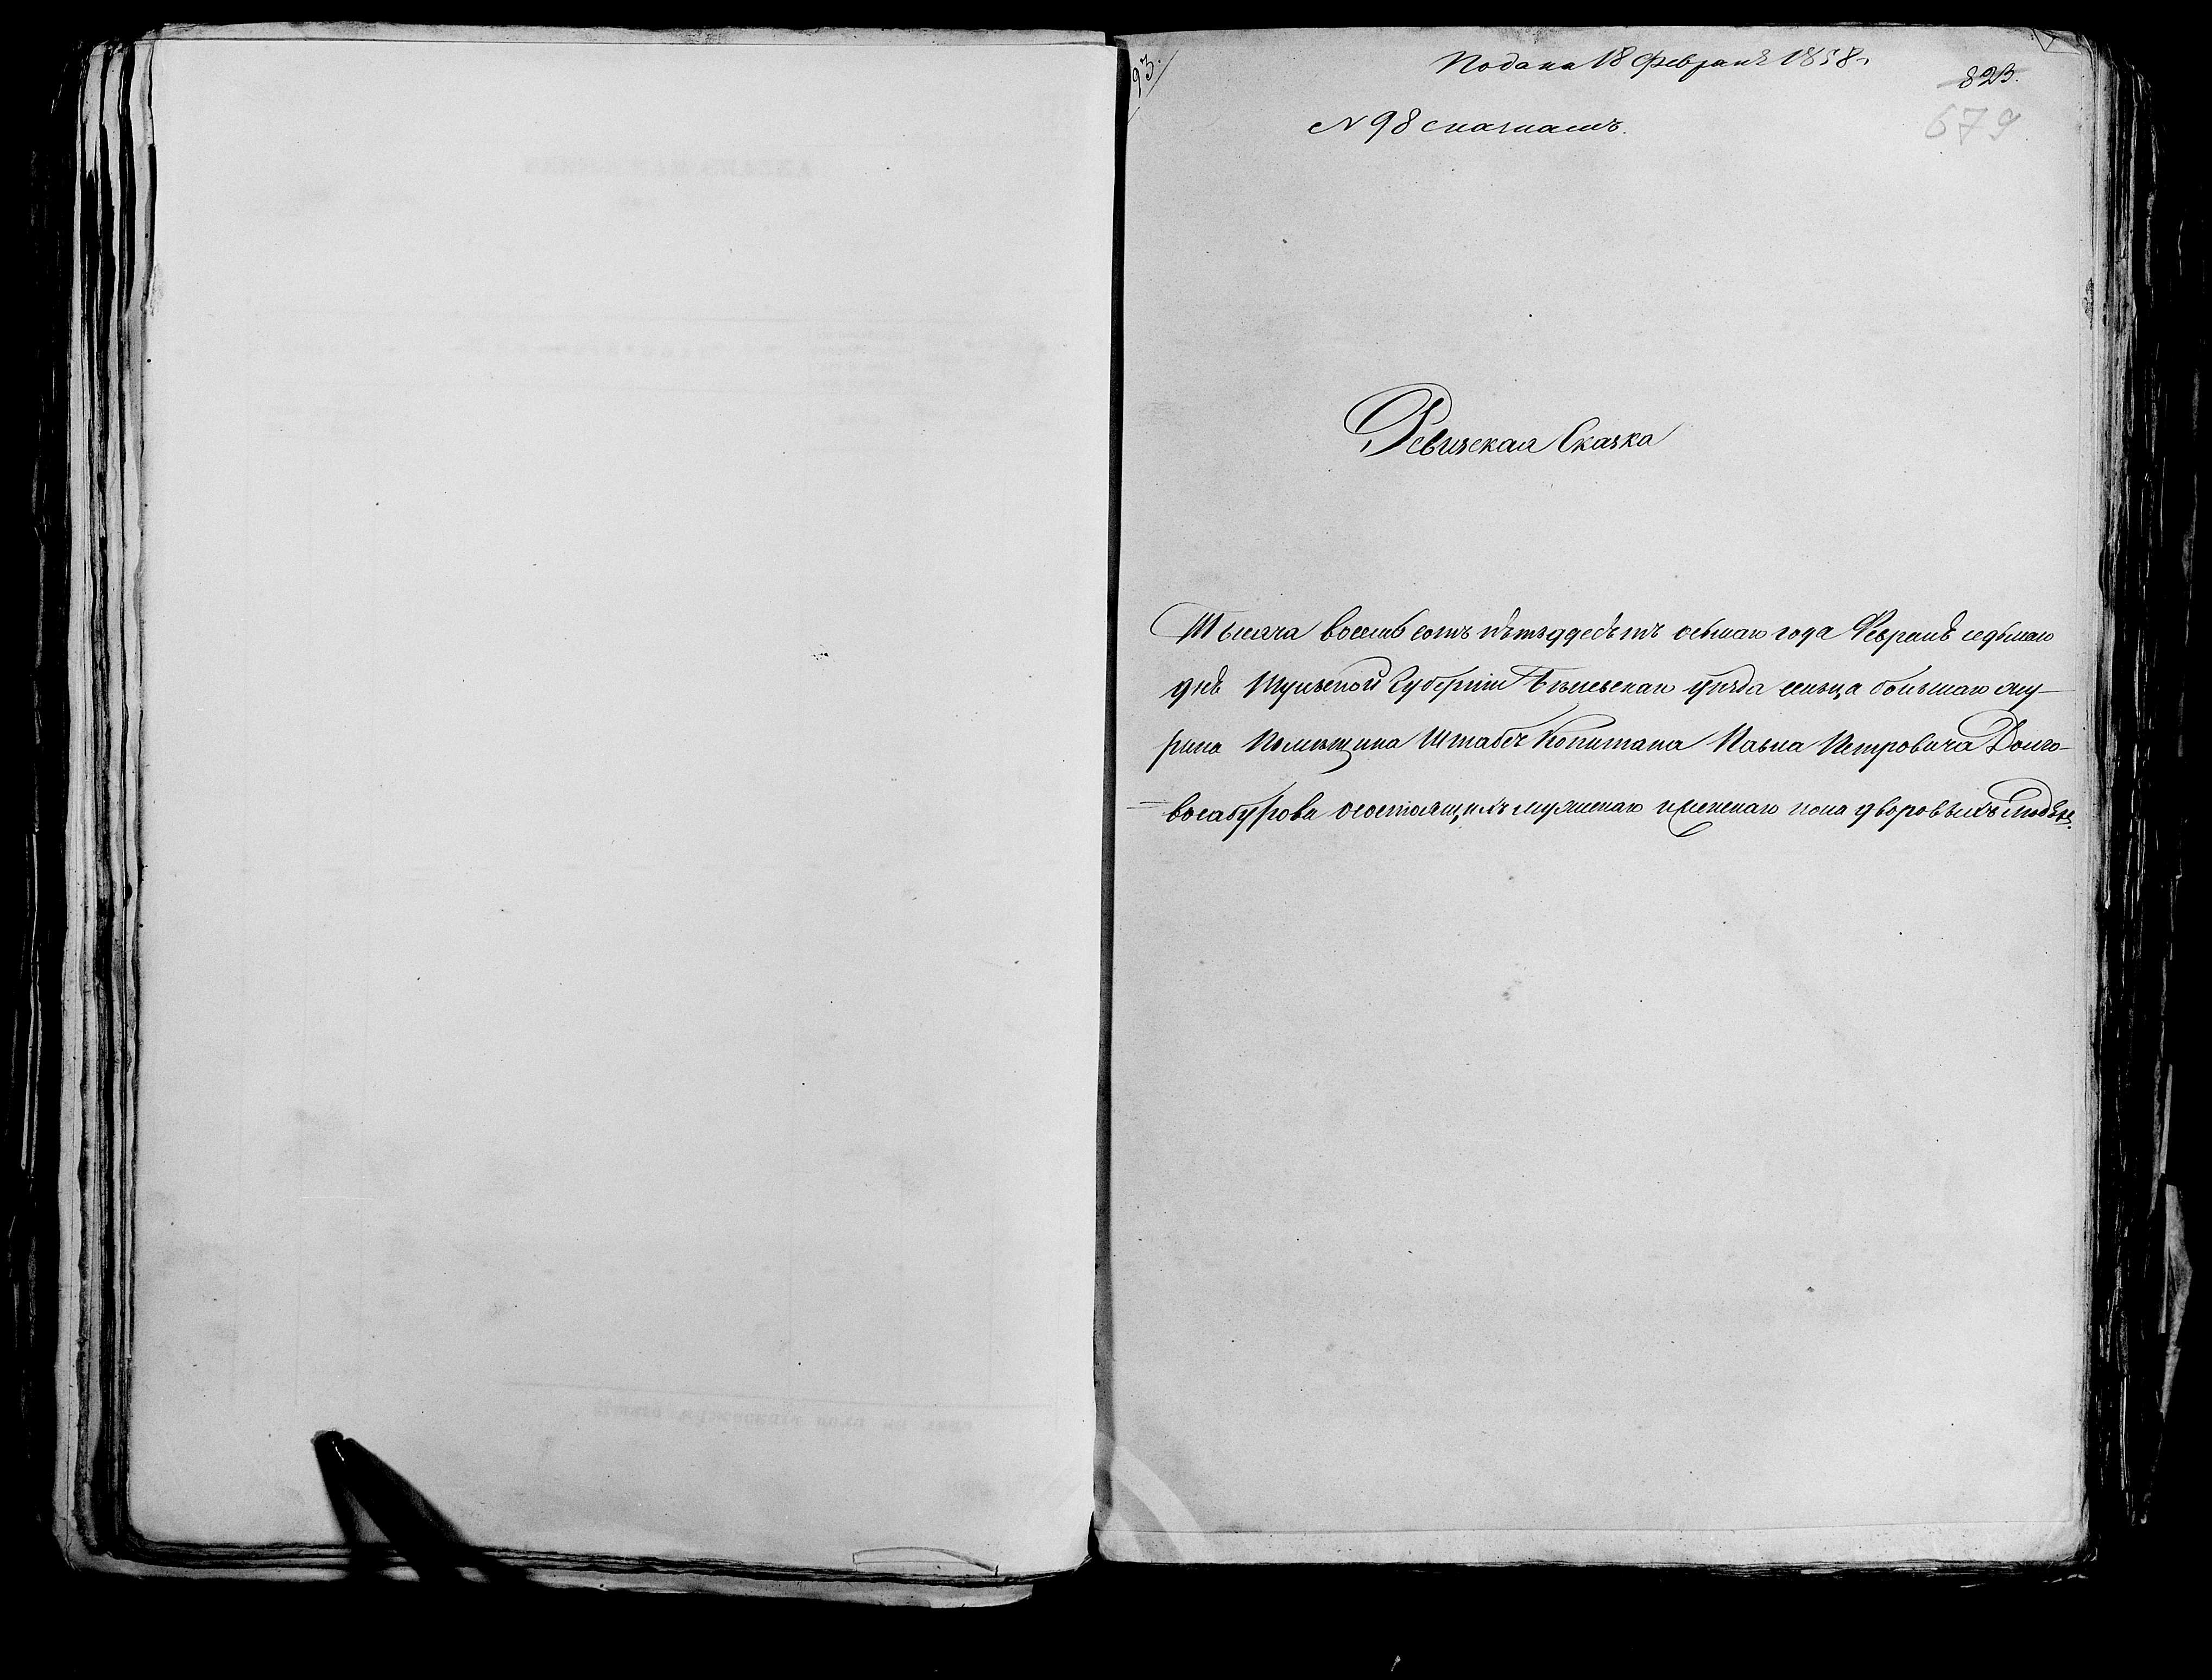 93.
Подана 18 Февраля 1858 г.
823.
679
N 98 сказкамъ.
Ревизская Сказка
Тысяча восемь сотъ пятьдесятъ осьмаго года Февраля седьмаго
дня Тульской Губерніи Бѣлевскаго уѣзда сельца большаго
Помѣщика Штабсъ Копитана Павла Петровича Долго-
восабурова осостоящихъ мужескаго иженскаго пола дворовыхъ людяхъ.